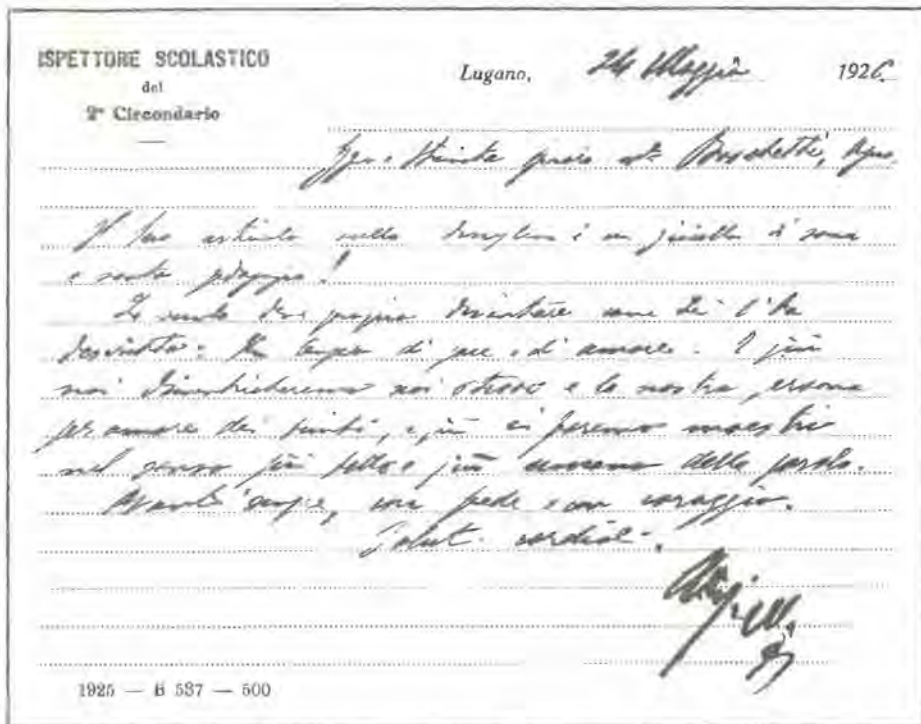 ISPETTORE SCOLASTICO
del
2° Circondario
Lugano, 24 Maggio 1926.
Boschetti, Agno
Il suo articolo sulla è un gioiello di sana
e santa pedagogia!
La scuola deve proprio diventare come Lei l'ha
descritta: Un tempio di pace e di amore. E più
noi dimenticheremo noi stessi e la nostra persona
per amore dei bimbi, e più ci faremo maestri
nel senso più bello e più umano della parola.
Avanti sempre, con fede e con coraggio.
Salut. cordiali.
1925 — B 537 — 500